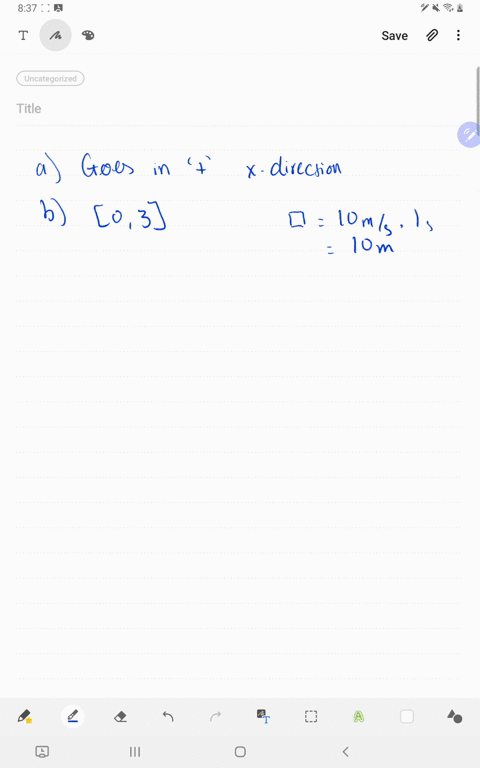 8:37
T
Save
Uncategorized
Title
a) Goes in '+' x-direction
b) [0, 3]
□ = 10 m/s . 1s
= 10m